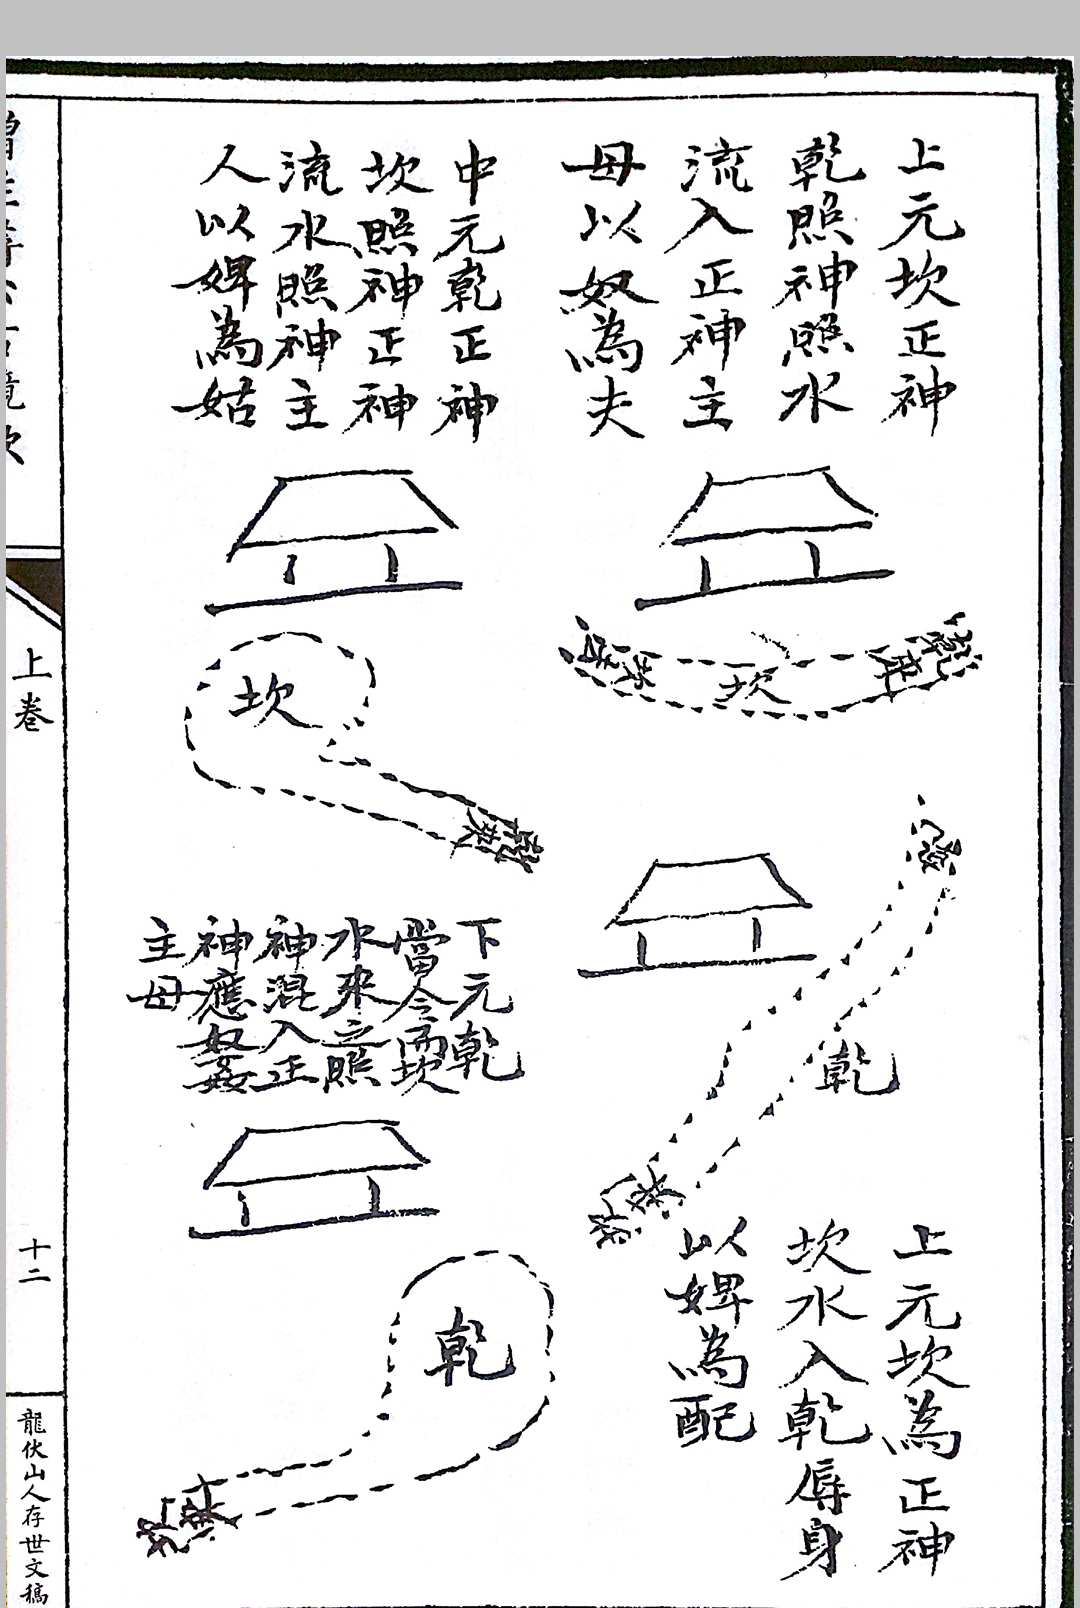 上元坎正神
乾照神照水
流入正神主
母以奴為夫
坎
中元乾正神
坎照神正神
流水照神主
人以婢為姑
坎
乾
上元坎為正神
坎水入乾辱身
以婢為配
下元乾
當令而坎
水來立照
神混入正
神應奴姦
主母
乾
上卷
十二
龍伏山人存世文稿